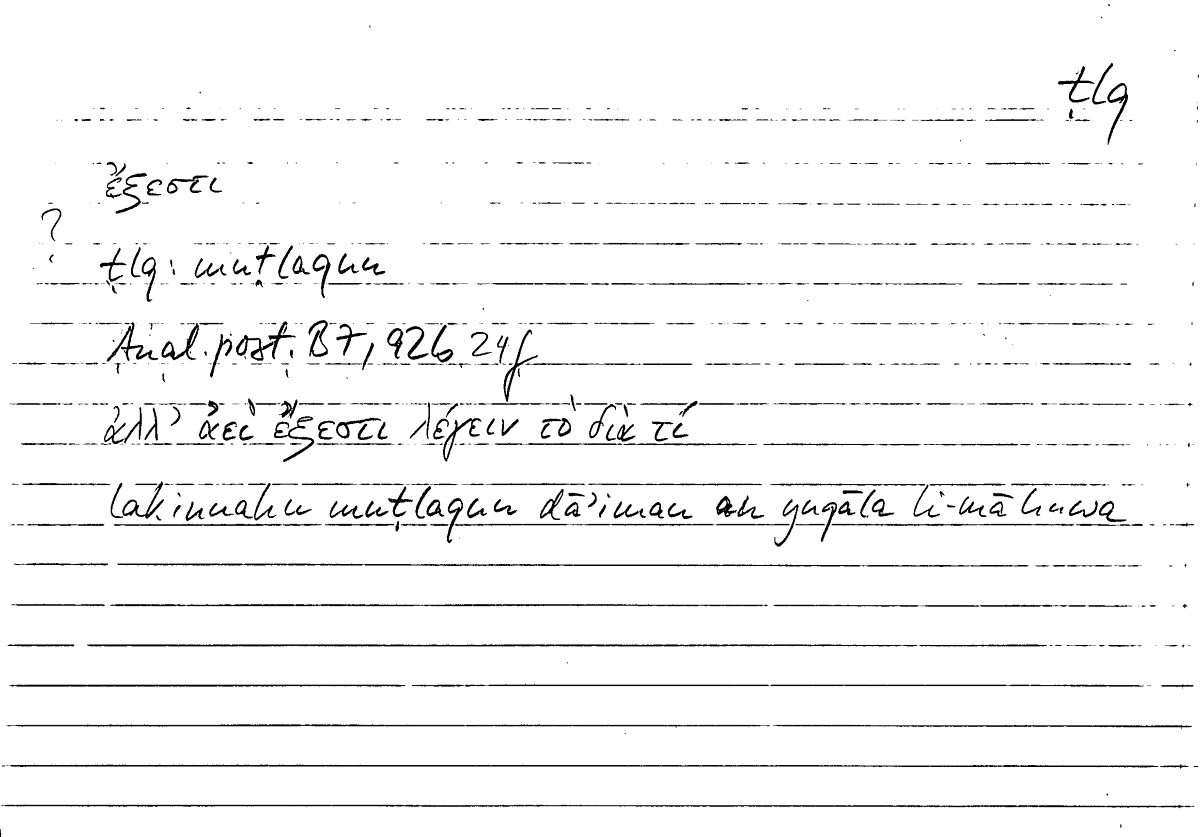 ṭlq
ἔξεστι
?
ṭlq: muṭlaqun
Anal. post. B7, 92b 24f
ἀλλ’ ἀεὶ ἔξεστι λέγειν τὸ διὰ τί
lakinnahu muṭlaqun dā’iman an yuqāla li-mā huwa